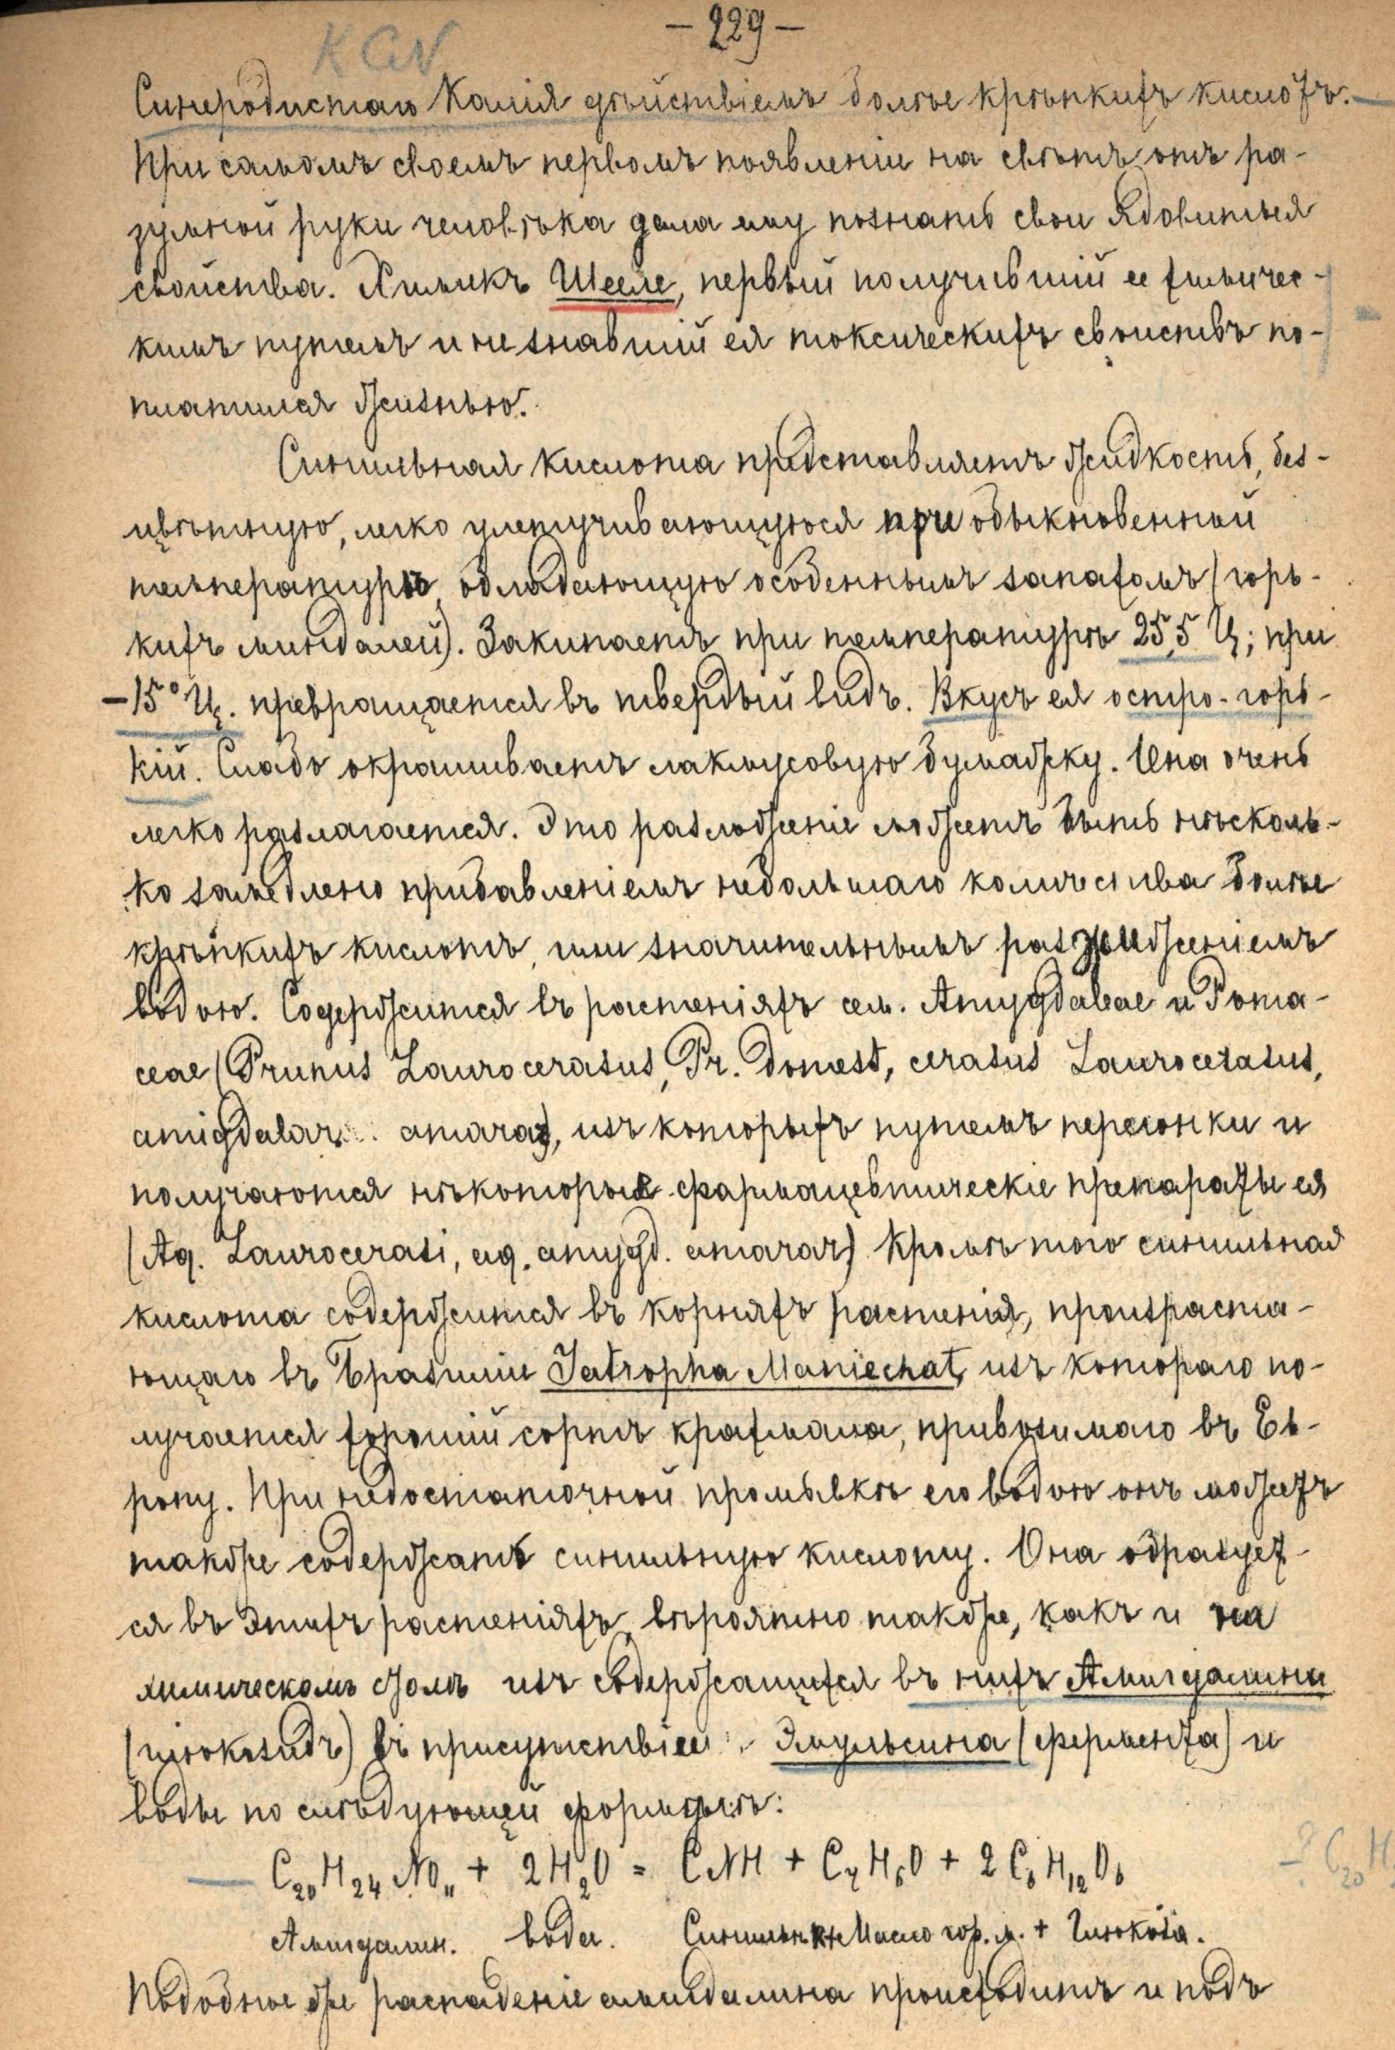 — 229 —
KCN
Синеродистаго Калія дѣйствіемъ болѣе крѣпкихъ кислотъ. —
При самомъ своемъ первомъ появленіи на свѣтъ отъ ра-
зумной руки человѣка дала ему познать свои ядовитыя
свойства. Химикъ Шееле, первый получившій ее химичес-
кимъ путемъ и не знавшій ея токсическихъ свойствъ по-
платился жизнью.
Синильная кислота представляетъ жидкость, без-
цвѣтную, легко улетучивающуюся при обыкновенной
температурѣ, обладающую особеннымъ запахомъ (горь-
кихъ миндалей). Закипаетъ при температурѣ 25,5 Ц; при
—15° Ц. превращается въ твердый видъ. Вкусъ ея остро-горь-
кій. Слабо окрашиваетъ лакмусовую бумажку. Она очень
легко разлагается. Это разложеніе можетъ быть нѣсколь-
ко замедлено прибавленіемъ небольшаго количества болѣе
крѣпкихъ кислотъ, или значительнымъ разжиженіемъ
водою. Содержится въ растеніяхъ сем. Amygdaleae и Poma-
ceae (Prunus Laurocerasus, Pr. Domest, cerasus Laurocerasus,
amigdalar. amarar), изъ которыхъ путемъ перегонки и
получаются нѣкоторые фармацевтическіе препараты ея
(Aq. Laurocerasi, aq. amygd. amarar) Кромѣ того синильная
кислота содержится въ корняхъ растенія, произраста-
ющаго въ Бразиліи Jatropha Maniechat, изъ котораго по-
лучается хорошій сортъ крахмала, привозимаго въ Ев-
ропу. При недостаточной промывкѣ его водою онъ можетъ
также содержать синильную кислоту. Она образует-
ся въ этихъ растеніяхъ, вѣроятно также, какъ и на
химическомъ столѣ изъ содержащихся въ нихъ Амигдалина
(глюкозидъ) въ присутствіи Эмульсина (фермента) и
воды по слѣдующей формулѣ:
— C₂₀H₂₄NO₁₁ + 2H₂O = CNH + C₇H₆O + 2C₆H₁₂O₆
Амигдалин. вода. Синильн. к. Масло гор. м. + Глюкоза.
Подобное же распаденіе амигдалина происходитъ и подъ